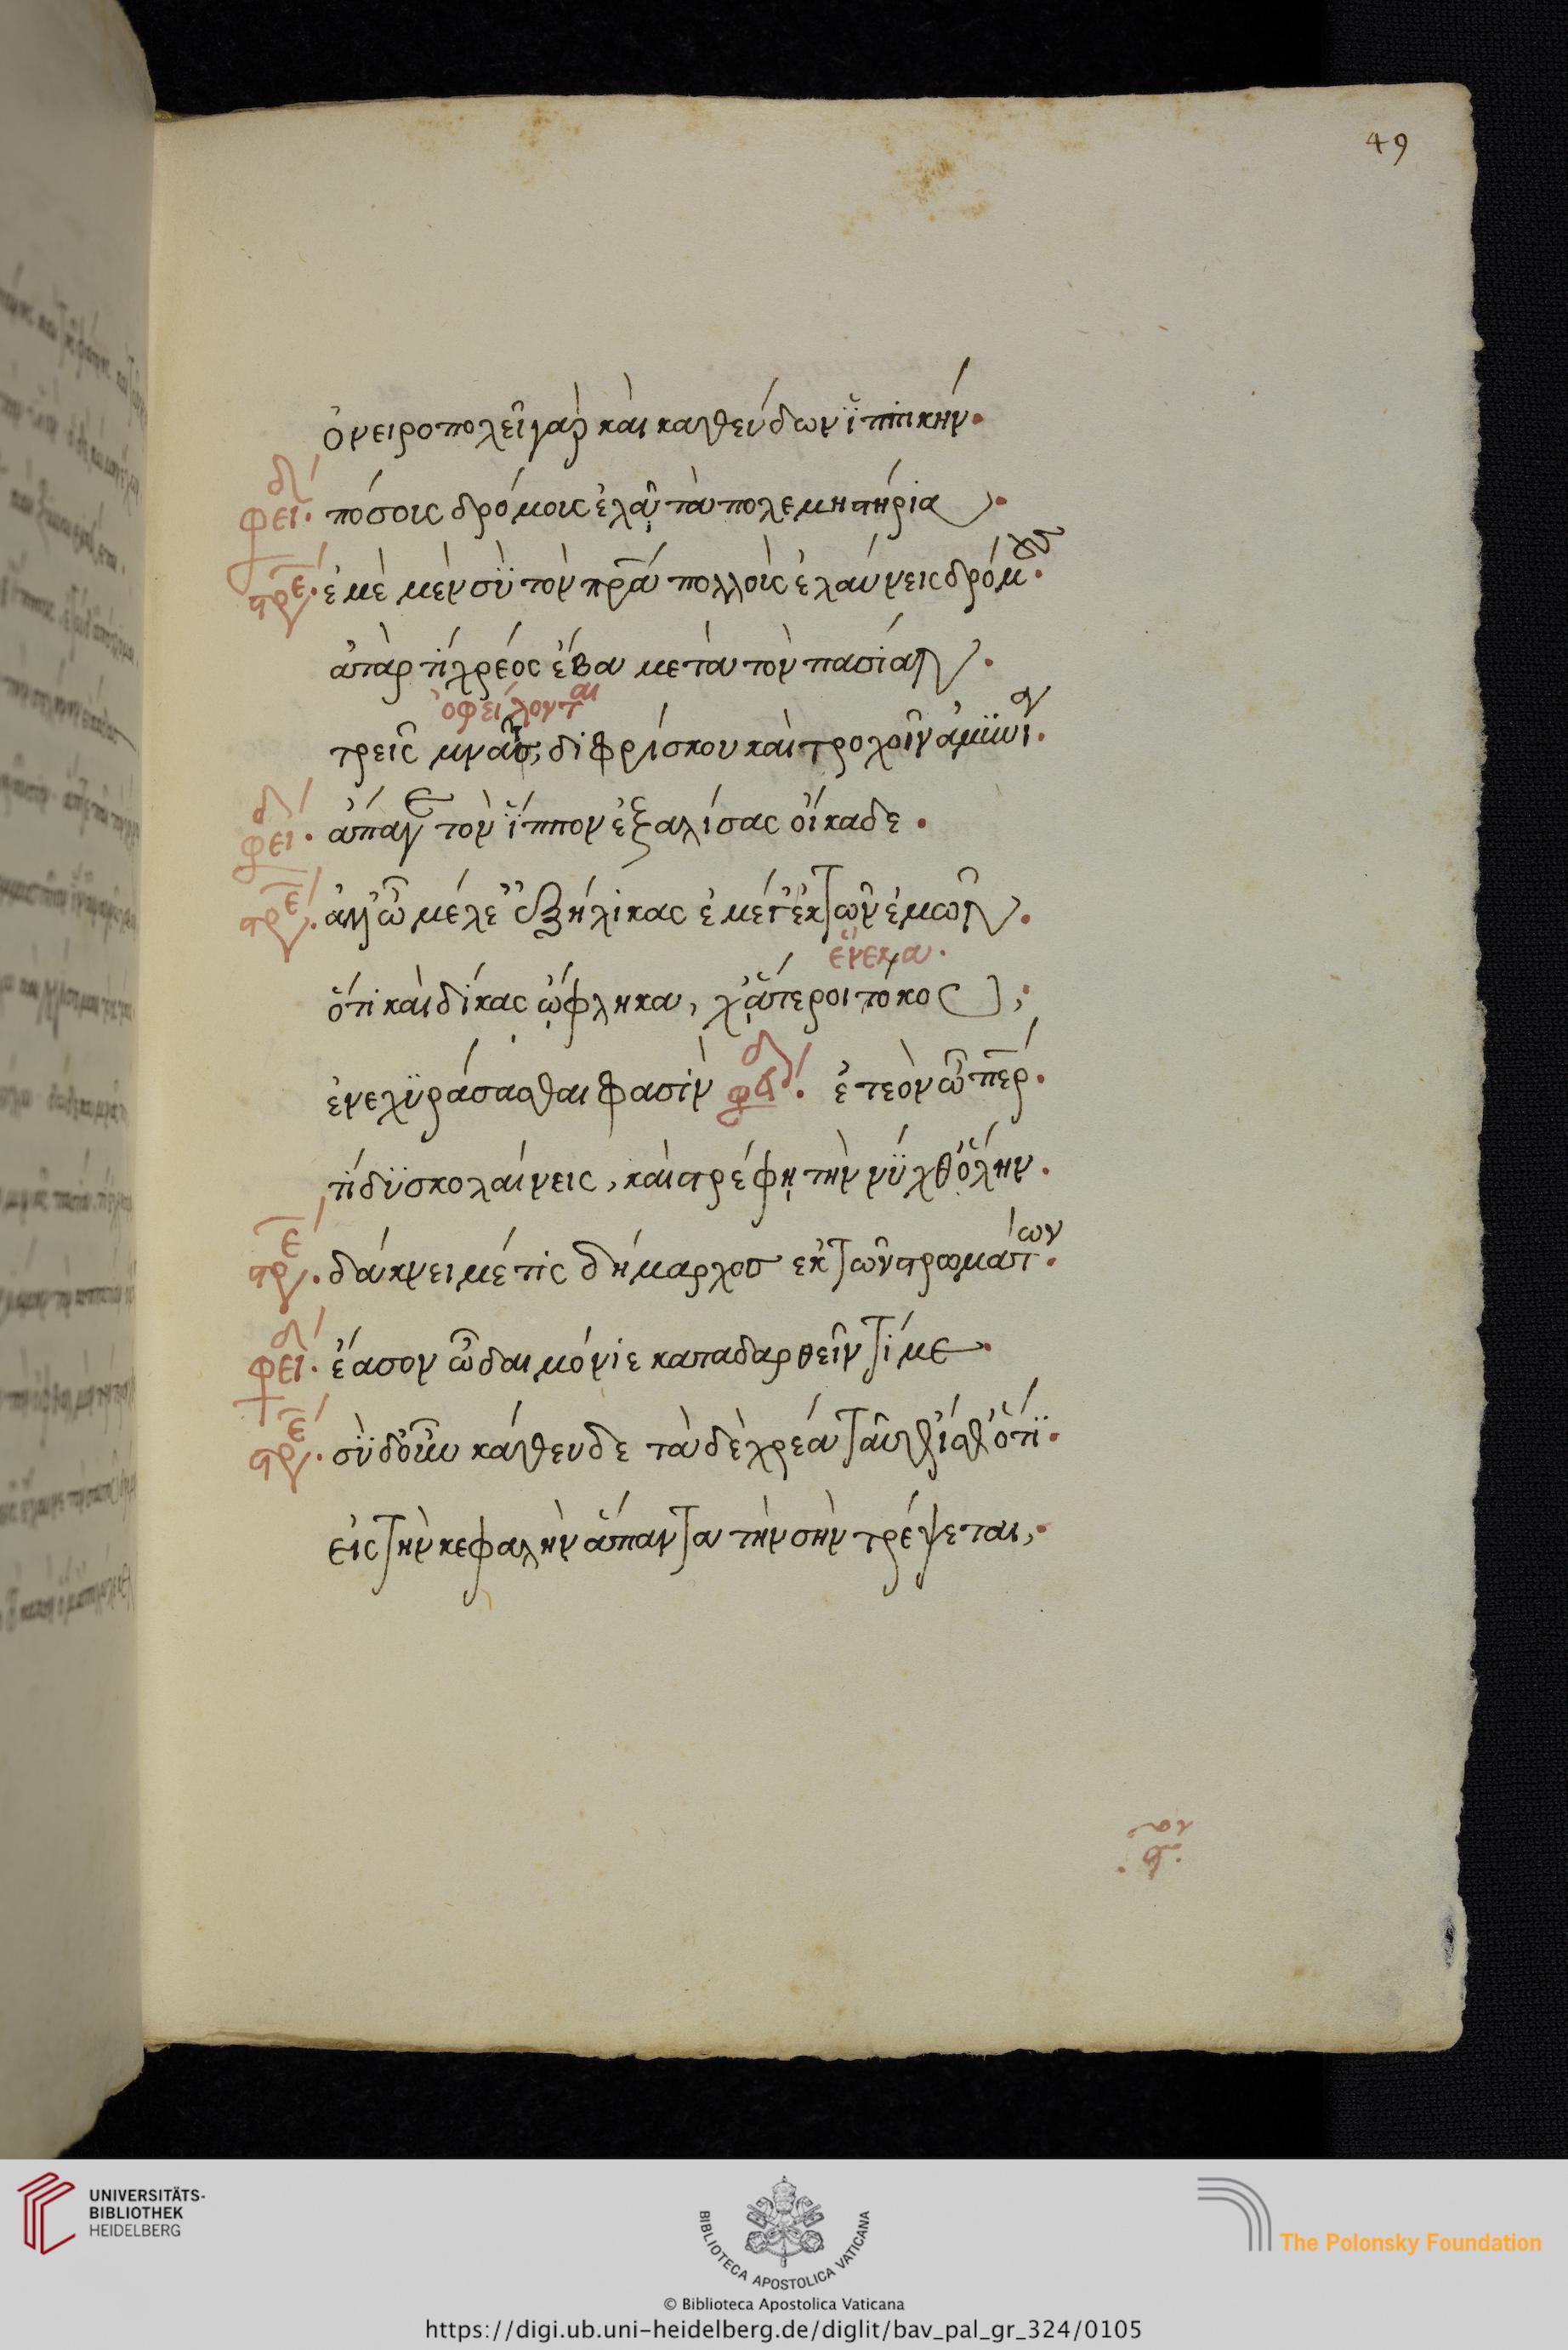 49
ὀνειροπολεῖ γὰρ καὶ καθεύδων ἱππικήν.
φειδ. πόσοις δρόμοις ἐλᾷ τὰ πολεμιστήρια.
στρε. ἐμὲ μὲν σὺ τὸν πρα πολλοὺς ἐλαύνεις δρόμους.
ἀτὰρ τί χρέος ἔβα μετὰ τὸν πασίαν.
ὀφείλονται
τρεῖς μναῖ, διφρίσκου καὶ τροχοῖν ἀμυνίᾳ.
φειδ. ἄπαγε τὸν ἵππον ἐξαλίσας οἴκαδε.
στρε. ἀλλ' ὦ μέλε' ἐξήλικας ἐμέ γ' ἐκ τῶν ἐμῶν.
ἕνεκα.
ὅτε καὶ δίκας ὤφληκα, χἄτεροι τόκου,
ἐνεχυράσασθαι φασίν φειδ. ἐτεὸν ὦ περ.
τί δυσκολαίνεις, καὶ στρέφῃ τὴν νύχθ' ὅλην.
στρε. δάκνει μέ τις δήμαρχος ἐκ τῶν στρωμάτων.
φειδ. ἔασον ὦ δαιμόνιε καταδαρθεῖν τί με.
στρε. σὺ δ' οὖν κάθευδε τὰ δὲ χρέα ταῦτ' ἴσθ' ὅτι.
εἰς τὴν κεφαλὴν ἅπαντα τὴν σὴν τρέψεται,
UNIVERSITÄTS-
BIBLIOTHEK
HEIDELBERG
BIBLIOTECA APOSTOLICA VATICANA
The Polonsky Foundation
© Biblioteca Apostolica Vaticana
https://digi.ub.uni-heidelberg.de/diglit/bav_pal_gr_324/0105